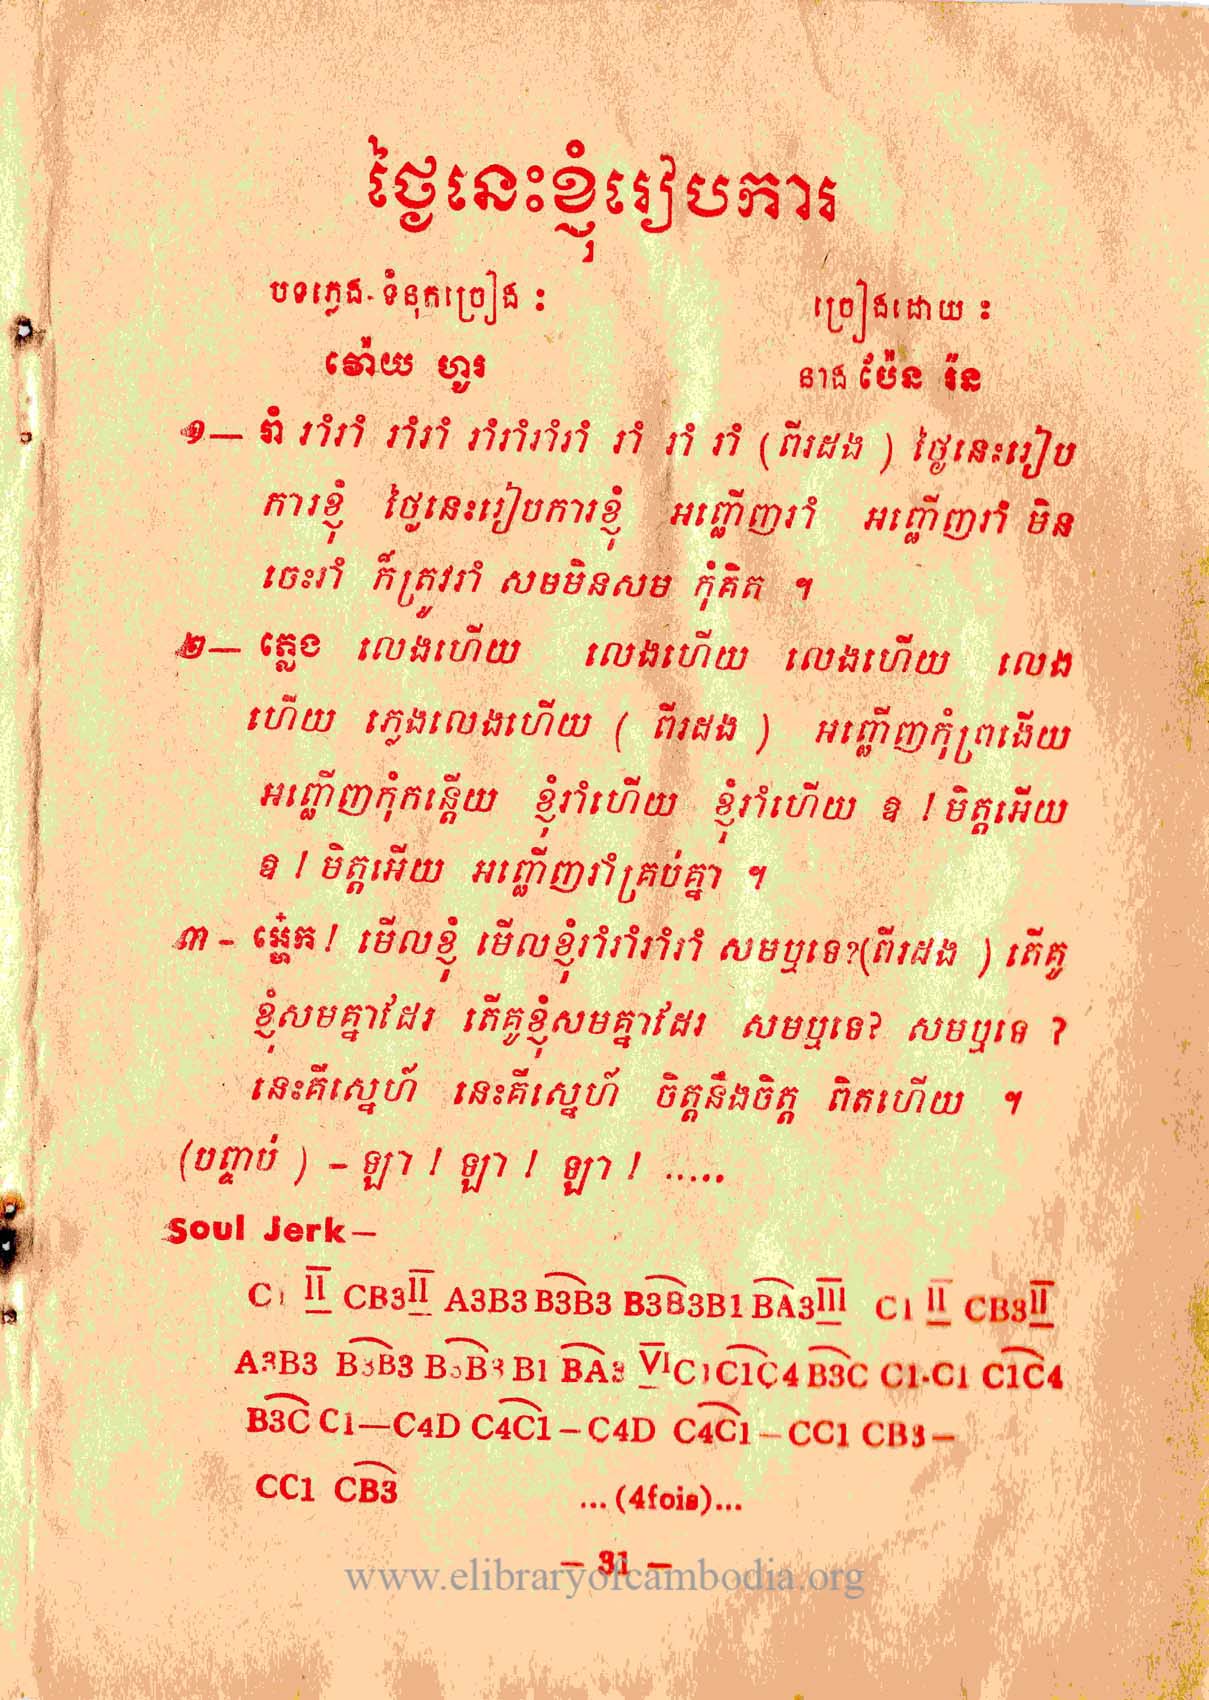 ថ្ងៃនេះខ្ញុំរៀបការ
បទភ្លេង-ទំនុកច្រៀង ៖
ច្រៀងដោយ ៖
វ៉ោយ ហូរ
នាង ប៉ែន រ៉ន
១— រាំ រាំរាំ រាំរាំ រាំរាំរាំរាំ រាំ រាំ រាំ (ពីរដង ) ថ្ងៃនេះរៀប
ការខ្ញុំ ថ្ងៃនេះរៀបការខ្ញុំ អញ្ជើញរាំ អញ្ជើញរាំ មិន
ចេះរាំ ក៏ត្រូវរាំ សមមិនសម កុំគិត ។
២— ភ្លេង លេងហើយ លេងហើយ លេងហើយ លេង
ហើយ ភ្លេងលេងហើយ ( ពីរដង ) អញ្ជើញកុំព្រងើយ
អញ្ជើញកុំកន្តើយ ខ្ញុំរាំហើយ ខ្ញុំរាំហើយ ឱ ! មិត្តអើយ
ឱ ! មិត្តអើយ អញ្ជើញរាំគ្រប់គ្នា ។
៣ - ! មើលខ្ញុំ មើលខ្ញុំរាំរាំរាំរាំ សមឬទេ?(ពីរដង ) តើគូ
ខ្ញុំសមគ្នាដែរ តើគូខ្ញុំសមគ្នាដែរ សមឬទេ? សមឬទេ ?
នេះគឺស្នេហ៍ នេះគឺស្នេហ៍ ចិត្តនឹងចិត្ត ពិតហើយ ។
(បញ្ចប់ ) - ឡា ! ឡា ! ឡា ! .....
Soul Jerk—
C1 II CB3II A3B3 B3B3 B3B3B1 BA3III C1 II CB3II
A3B3 B3B3 B3B3 B1 BA3 VI C1C1C4 B3C C1.C1 C1C4
B3C C1—C4D C4C1—C4D C4C1—CC1 CB3—
CC1 CB3 ...(4fois)...
— 31 —
www.elibraryofcambodia.org